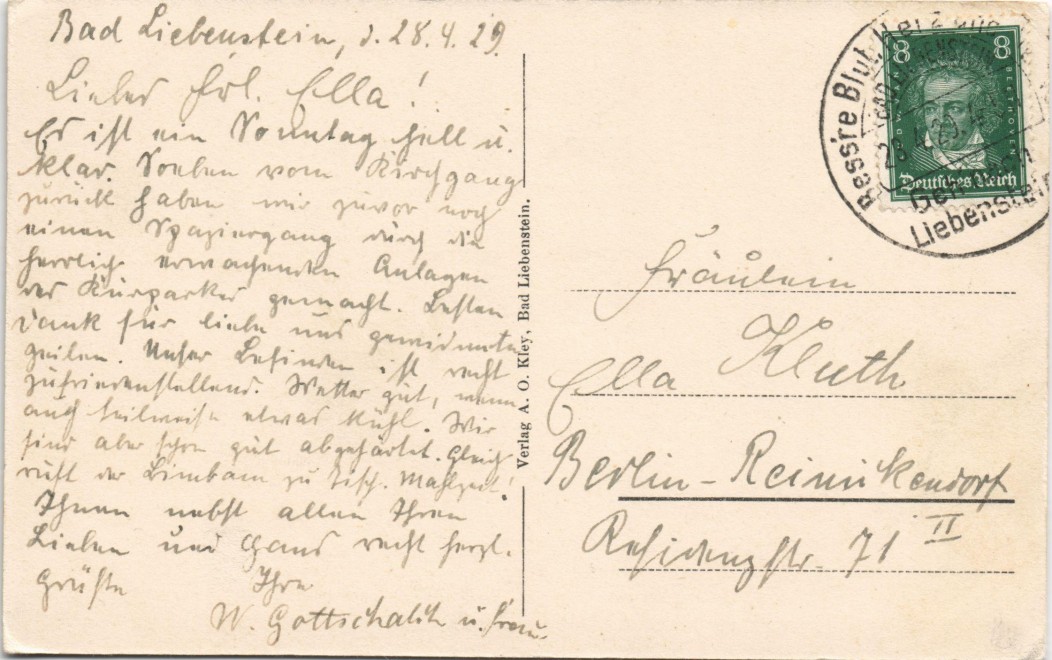 Bad Liebenstein, d. 28.4.29
Liebes Frl. Ella!
Es ist ein Sonntag hell u.
klar. Soeben vom Kirchgang
zurück haben wir zuvor noch
einen Spaziergang durch die
herrlich erwachenden Anlagen
des Kurparkes gemacht. Besten
Dank für liebe uns gewidmete
Zeilen. Unser Befinden ist recht
zufriedenstellend. Wetter gut, wenn
auch teilweise etwas kühl. Wir
sind aber schon gut abgehärtet. Gleich
ruft der Bimbam zu Tisch. Mahlzeit!
Ihnen nebst allen Ihren
Lieben und Hans recht herzl.
Grüße Ihre
W. Gottschalk u. Frau.
Verlag A. O. Kley, Bad Liebenstein.
Bess're Blut, Herz
BAD LIEBENSTEIN
28.4.29
Liebenstein
8 8
BEETHOVEN
Deutsches Reich
Fräulein
Ella Kluth
Berlin-Reinickendorf
Residenzstr. 71 II